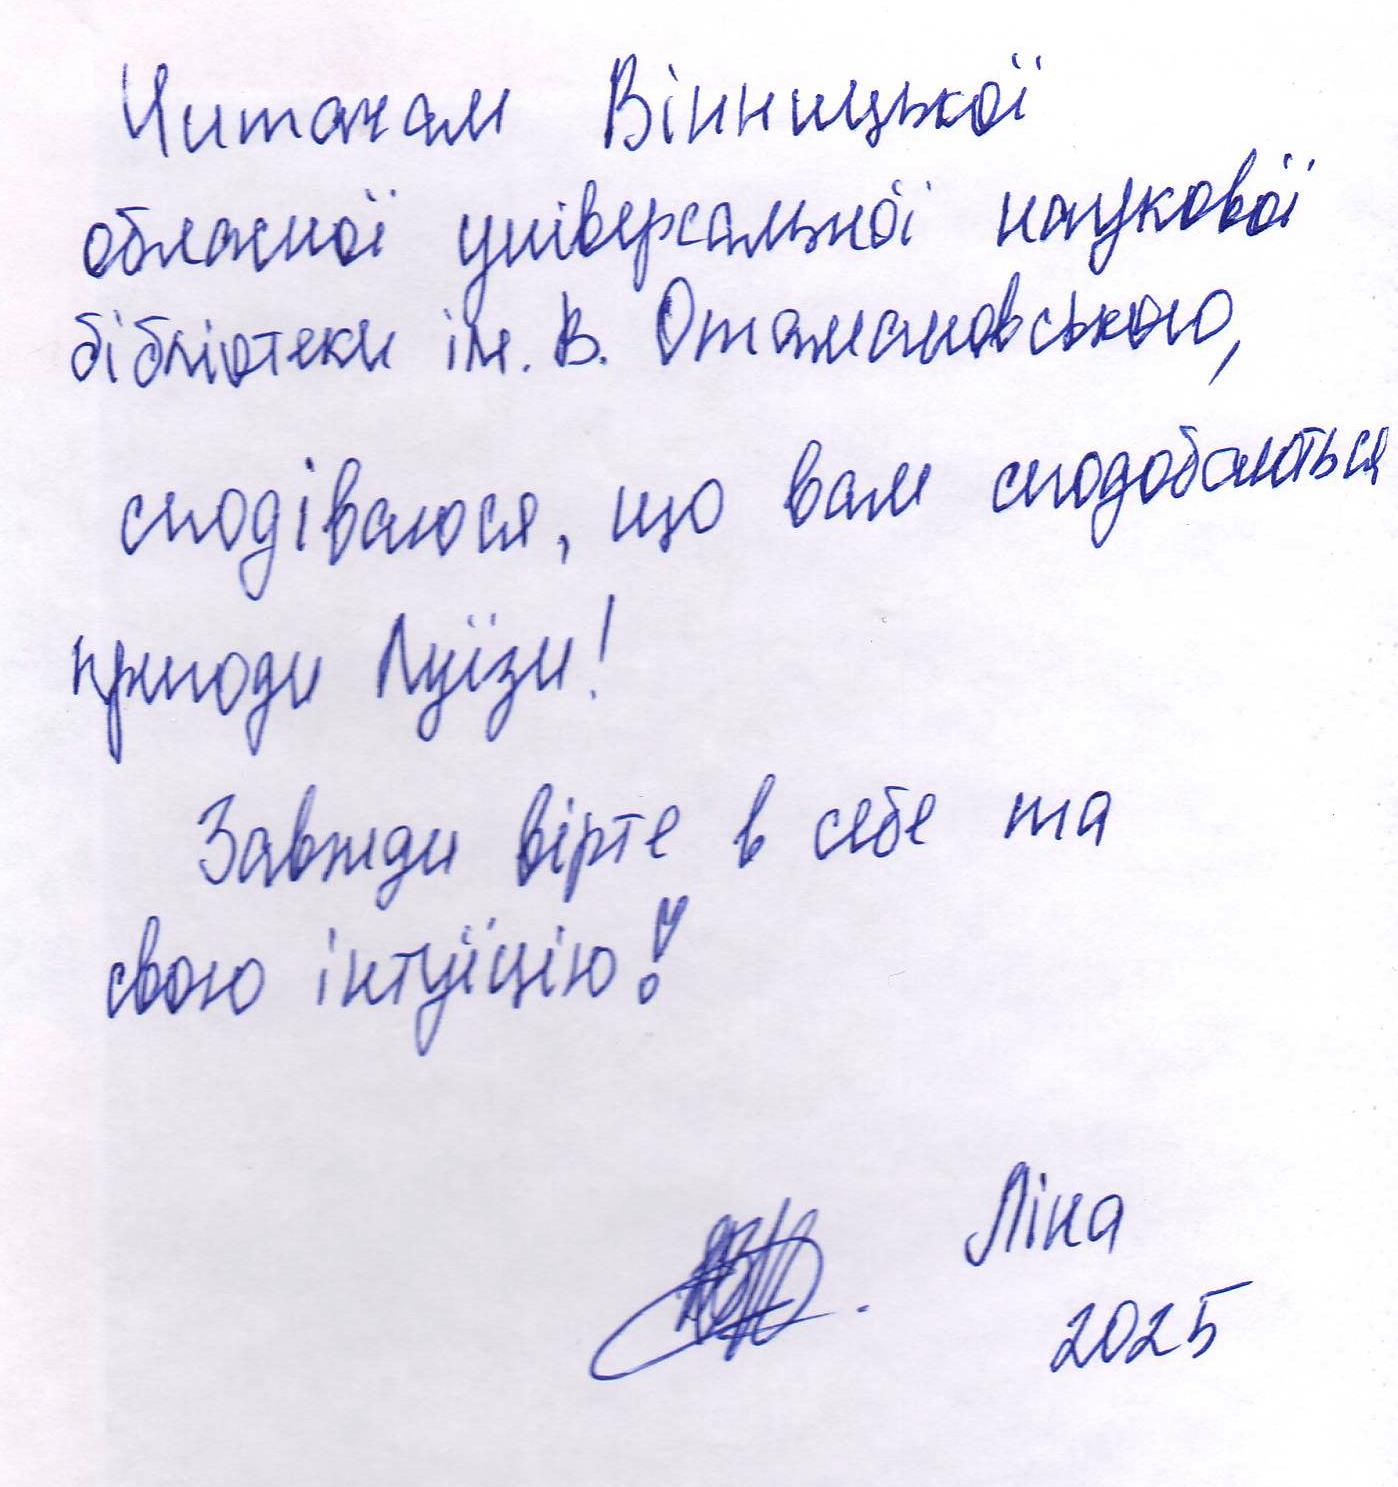 Читачам Вінницької
обласної універсальної наукової
бібліотеки ім. В. Отамановського,
сподіваюся, що вам сподобаються
пригоди Луїзи!
Завжди вірте в себе та
свою інтуїцію!
Ліна
2025